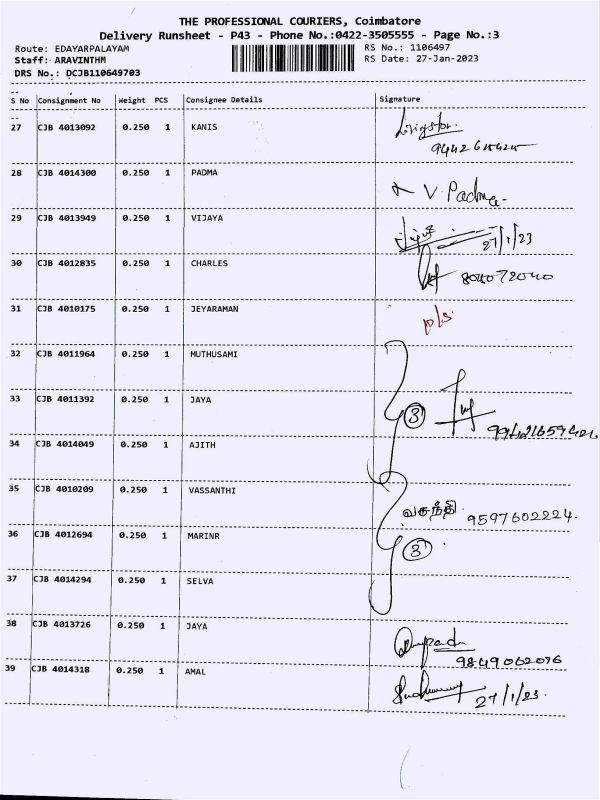 THE PROFESSIONAL COURIERS, Coimbatore
Delivery Runsheet - P43 - Phone No.:0422-3505555 - Page No.:3
Route: EDAYARPALAYAM RS No.: 1106497
Staff: ARAVINTHM RS Date: 27-Jan-2023
DRS No.: DCJB110649703
S No Consignment No Weight PCS Consignee Details Signature
27 CJB 4013092 0.250 1 KANIS Livingston
9442615425
28 CJB 4014300 0.250 1 PADMA V. Padma
29 CJB 4013949 0.250 1 VIJAYA
27/1/23
30 CJB 4012835 0.250 1 CHARLES
31 CJB 4010175 0.250 1 JEYARAMAN P/S.
32 CJB 4011964 0.250 1 MUTHUSAMI
33 CJB 4011392 0.250 1 JAYA 3
34 CJB 4014049 0.250 1 AJITH
35 CJB 4010209 0.250 1 VASSANTHI வசந்தி 9597602224.
36 CJB 4012694 0.250 1 MARINR 3
37 CJB 4014294 0.250 1 SELVA
38 CJB 4013726 0.250 1 JAYA
9849062076
39 CJB 4014318 0.250 1 AMAL 27/1/23.